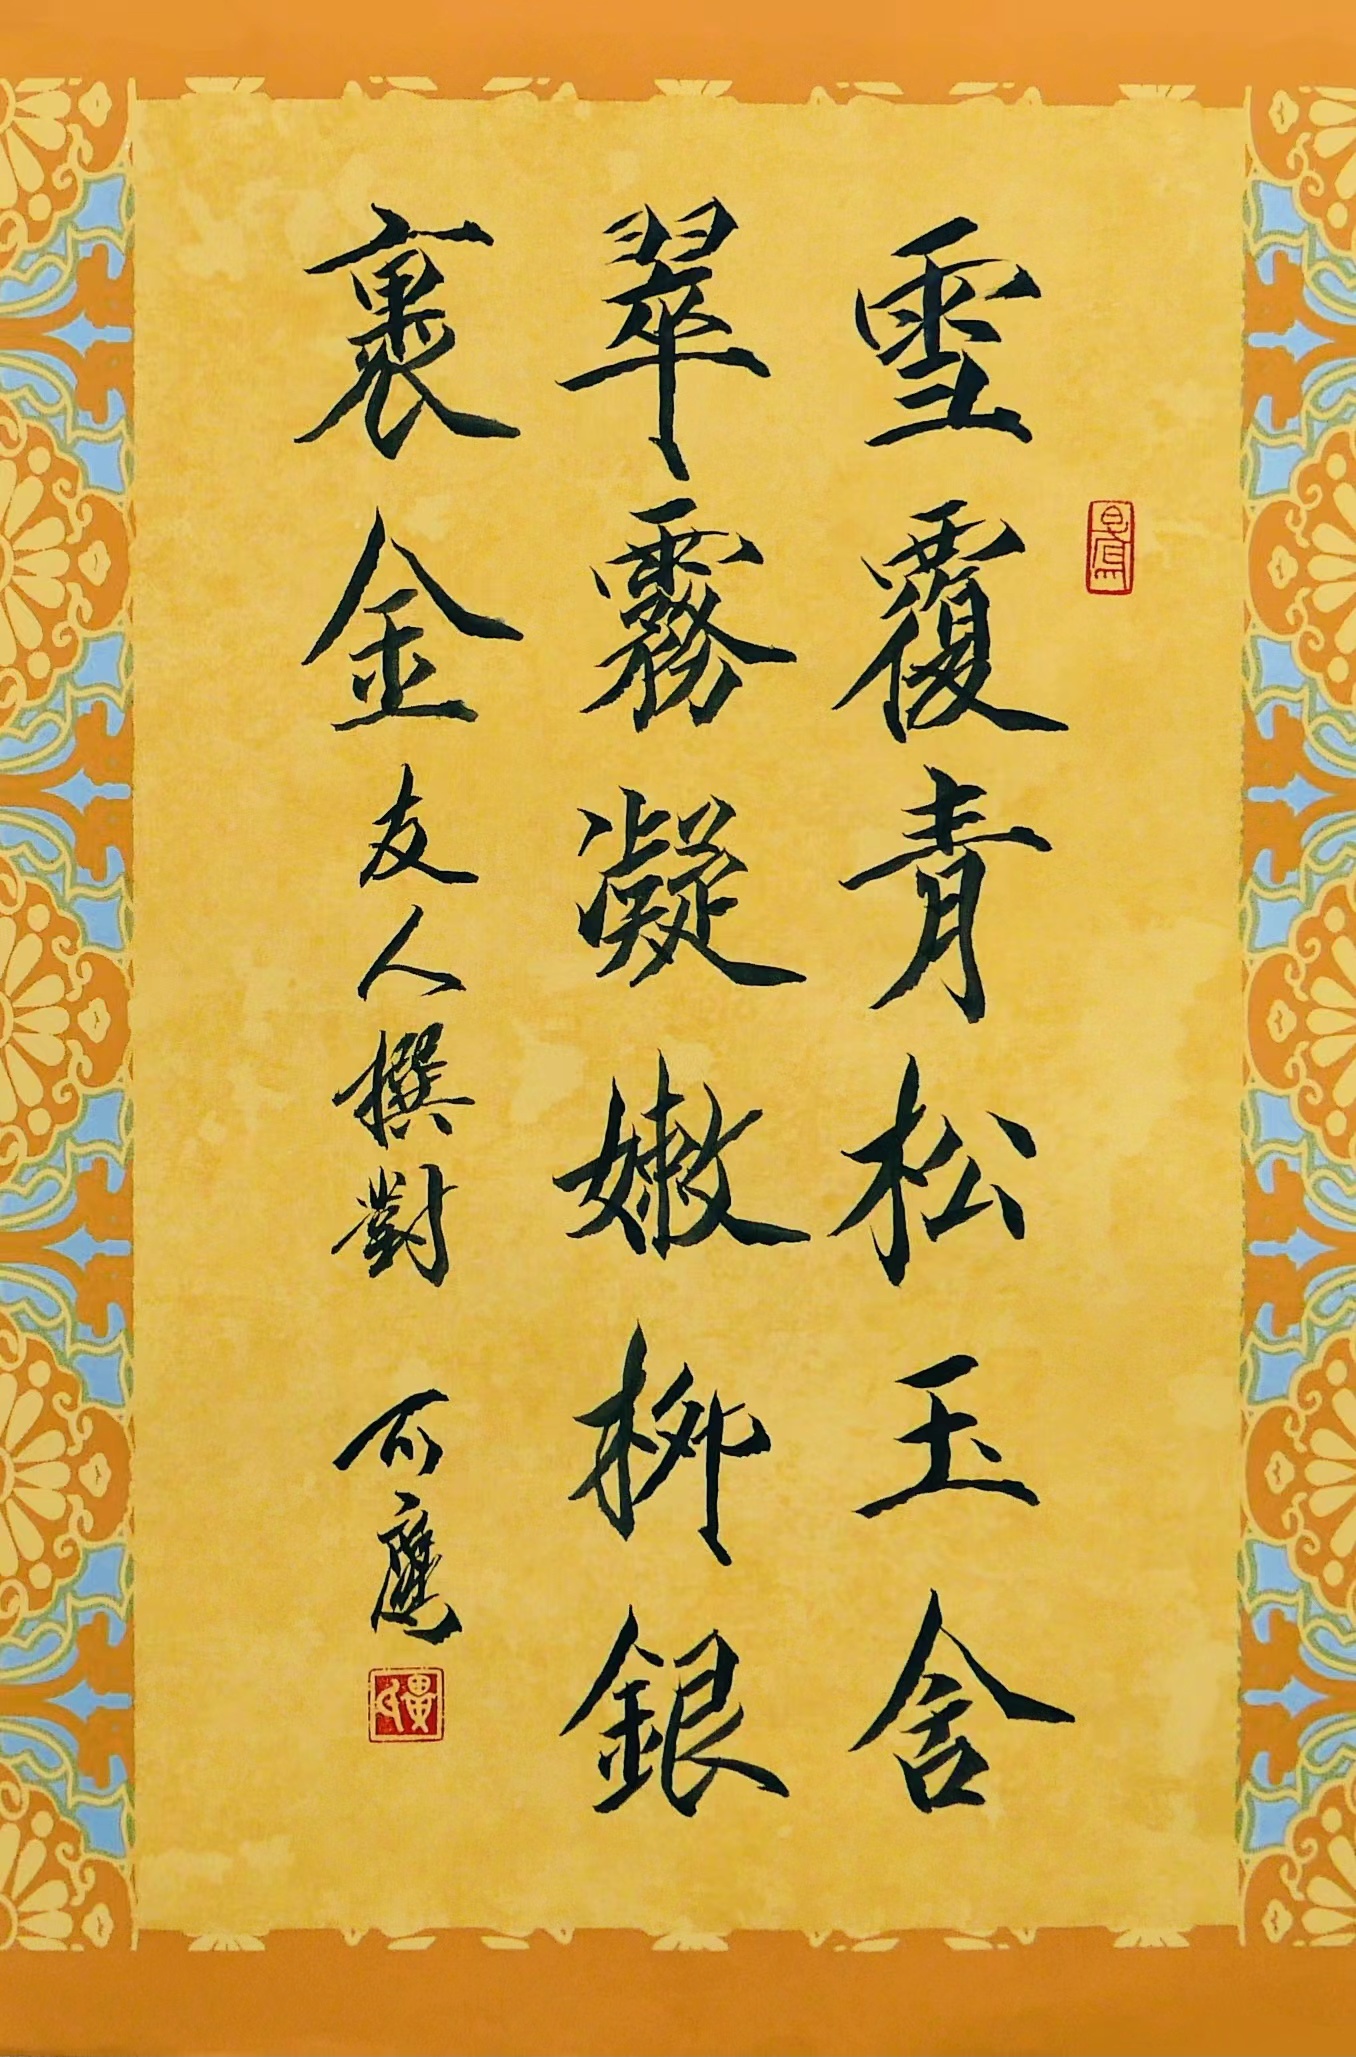 雪覆青松玉含
翠霧凝嫩柳銀
裹金友人撰對